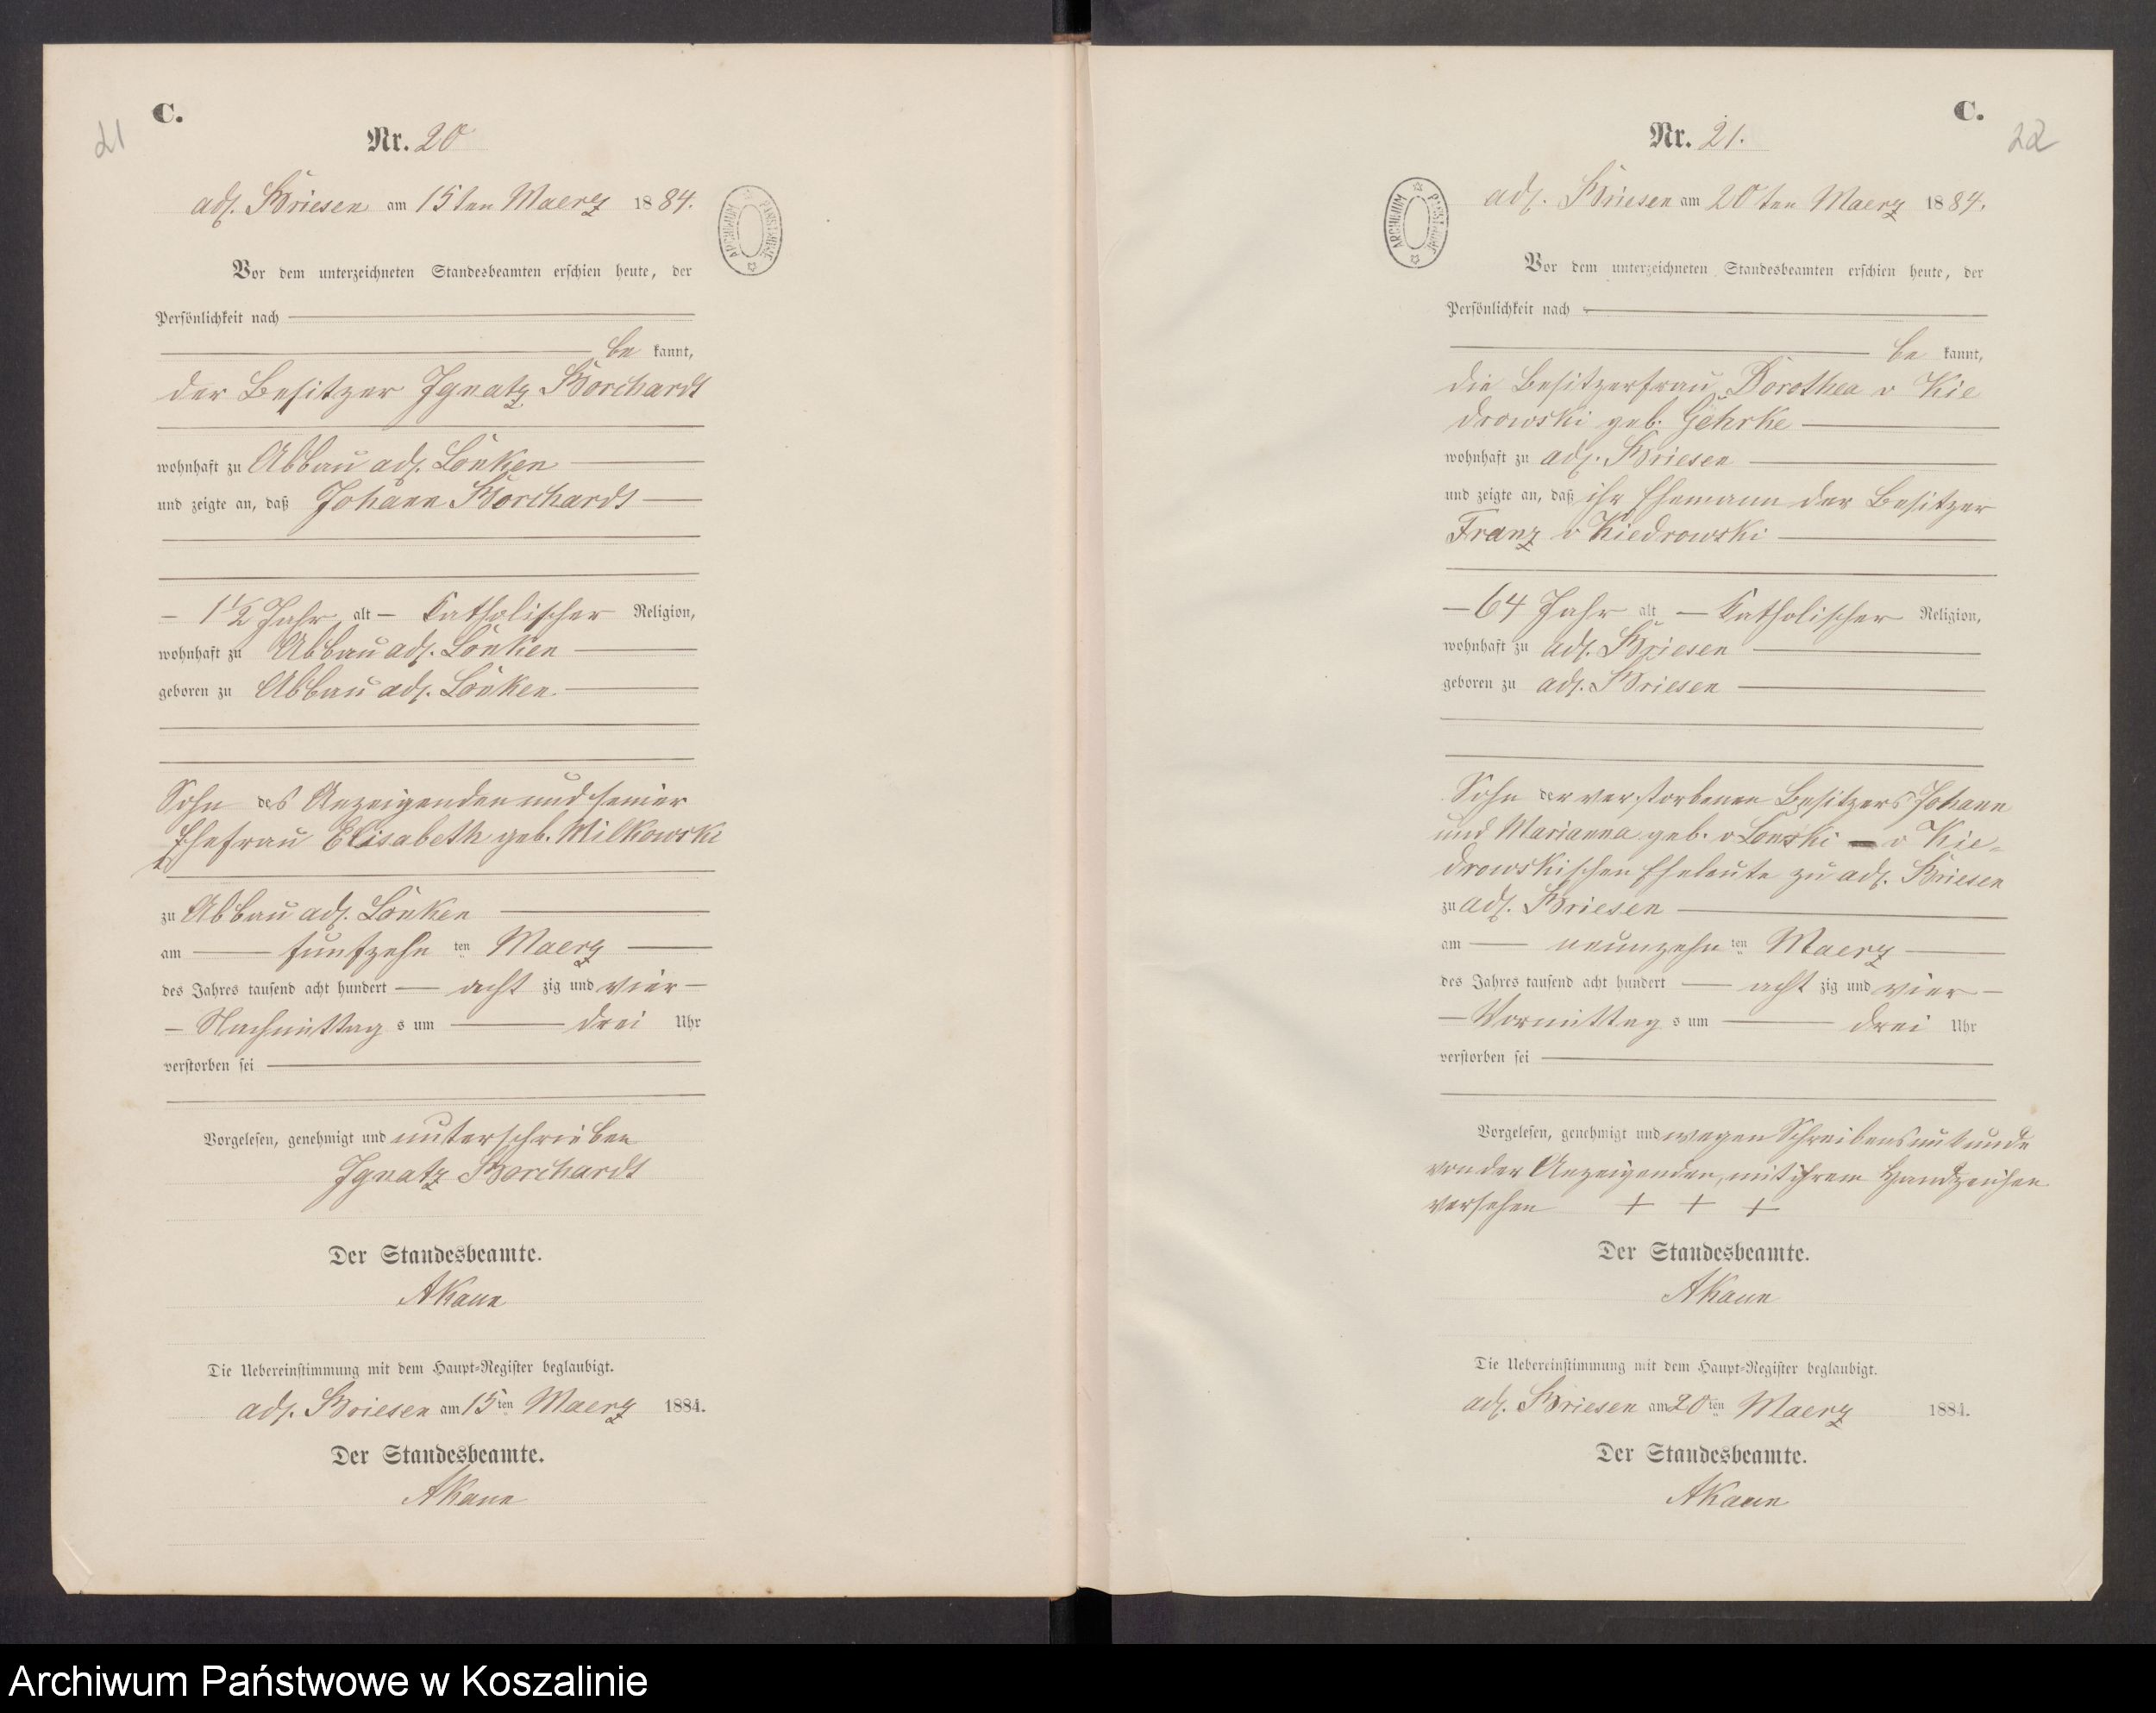 21
C.
Nr. 20
adl. Briesen am 15ten Maerz 1884.
ARCHIWUM PAŃSTWOWE
Vor dem unterzeichneten Standesbeamten erschien heute, der
Persönlichkeit nach
be kannt,
der Besitzer Ignatz Borchardt
wohnhaft zu Abbau adl. Lonken
und zeigte an, daß Johann Borchardt
1 1/2 Jahr alt – Katholischer Religion,
wohnhaft zu Abbau adl. Lonken
geboren zu Abbau adl. Lonken
Sohn des Anzeigenden und seiner
Ehefrau Elisabeth geb. Milkowski
zu Abbau adl. Lonken
am fünfzehn ten Maerz
des Jahres tausend acht hundert acht zig und vier
Nachmittag s um drei Uhr
verstorben sei
Vorgelesen, genehmigt und unterschrieben
Ignatz Borchardt
Der Standesbeamte.
AKaun
Die Uebereinstimmung mit dem Haupt-Register beglaubigt.
adl. Briesen am 15ten Maerz 1884.
Der Standesbeamte.
AKaun
C.
22
Nr. 21.
adl. Briesen am 20ten Maerz 1884.
ARCHIWUM PAŃSTWOWE
Vor dem unterzeichneten Standesbeamten erschien heute, der
Persönlichkeit nach
be kannt,
die Besitzerfrau Dorothea v Kie
drowski geb. Gehrke
wohnhaft zu adl. Briesen
und zeigte an, daß ihr Ehemann der Besitzer
Franz v Kiedrowski
64 Jahr alt – Katholischer Religion,
wohnhaft zu adl. Briesen
geboren zu adl. Briesen
Sohn der verstorbenen Besitzers Johann
und Marianna geb. v Lonski – v Kie-
drowskischen Eheleute zu adl. Briesen
zu adl. Briesen
am neunzehn ten Maerz
des Jahres tausend acht hundert acht zig und vier
Vormittag s um drei Uhr
verstorben sei
Vorgelesen, genehmigt und wegen Schreibensunkunde
von der Anzeigenden, mit ihrem Handzeichen
versehen + + +
Der Standesbeamte.
AKaun
Die Uebereinstimmung mit dem Haupt-Register beglaubigt.
adl. Briesen am 20ten Maerz 1884.
Der Standesbeamte.
AKaun
Archiwum Państwowe w Koszalinie